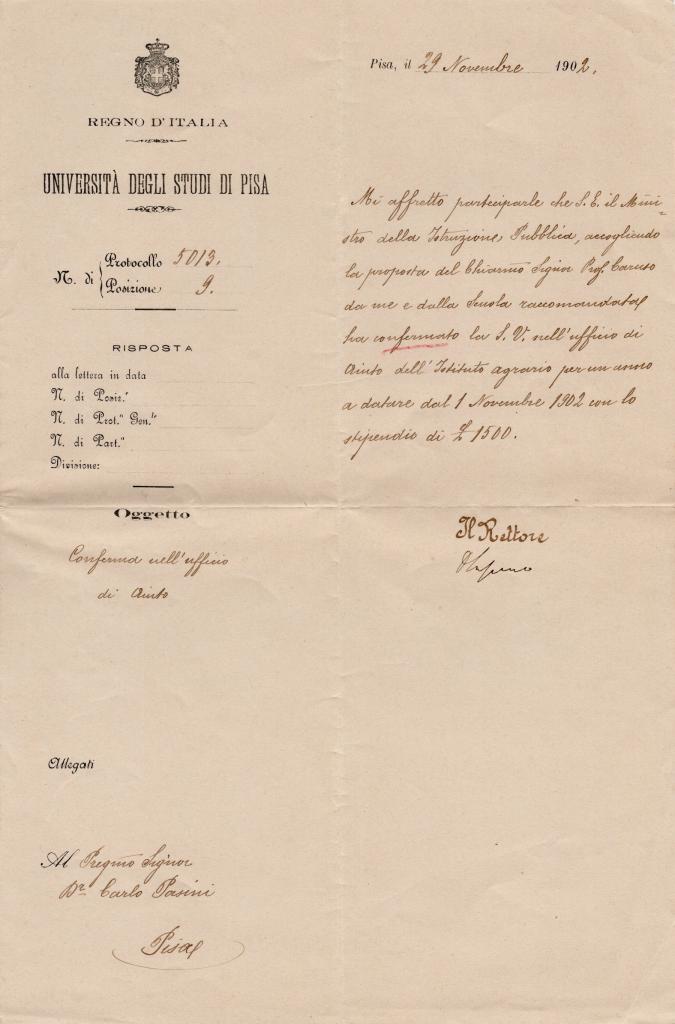 REGNO D'ITALIA
UNIVERSITÀ DEGLI STUDI DI PISA
N. di
Protocollo 5013.
Posizione 9.
RISPOSTA
alla lettera in data
N. di Posiz.e
N. di Prot.o Gen.le
N. di Part.a
Divisione:
Oggetto
Conferma nell'ufficio
di Aiuto
Allegati
Al Pregmo Signor
Dr. Carlo Pasini
Pisa
Pisa, il 29 Novembre 1902.
Mi affretto parteciparle che S. E. il Mini-
stro della Istruzione Pubblica, accogliendo
la proposta del Chiarmo Signor Prof. Caruso
da me e dalla Scuola raccomandata
ha confermato la S. V. nell'ufficio di
Aiuto dell'Istituto agrario per un anno
a datare dal 1 Novembre 1902 con lo
stipendio di £ 1500.
Il Rettore